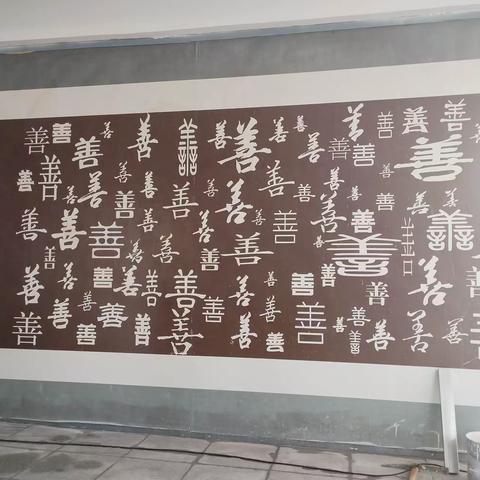 善善善善善善善善善善善善善善
善善善善善善善
善善善善善善善善善善善善善善善善
善善善善善善善善善善善善善善善善
善善善善善善善善善善善善
善善善善善善善善善善善善善善善善善善善